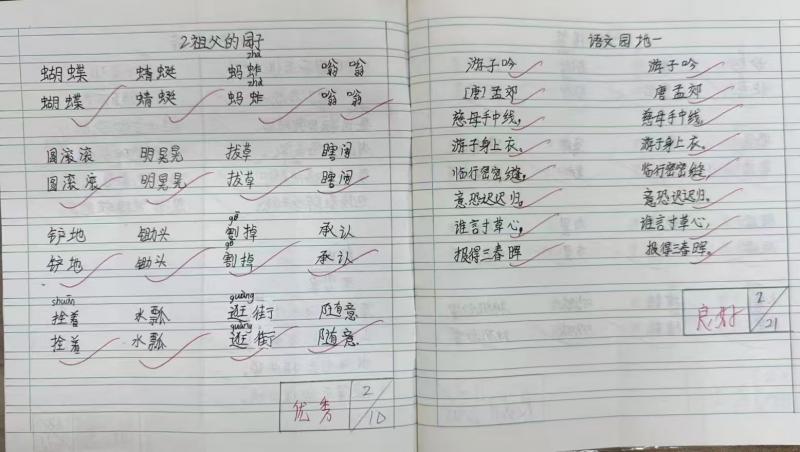 2祖父的园子
zhà
蝴蝶 蜻蜓 蚂蚱 嗡嗡
zhà
蝴蝶 蜻蜓 蚂蚱 嗡嗡
圆滚滚 明晃晃 拔草 瞎闹
圆滚滚 明晃晃 拔草 瞎闹
gē
铲地 锄头 割掉 承认
gē
铲地 锄头 割掉 承认
shuān guàng
拴着 水瓢 逛街 随意
guàng
拴着 水瓢 逛街 随意
优秀 2/10
语文园地一
游子吟 游子吟
[唐]孟郊 唐 孟郊
慈母手中线, 慈母手中线,
游子身上衣。 游子身上衣。
临行密密缝, 临行密密缝,
意恐迟迟归。 意恐迟迟归。
谁言寸草心, 谁言寸草心,
报得三春晖 报得三春晖。
良好 2/21